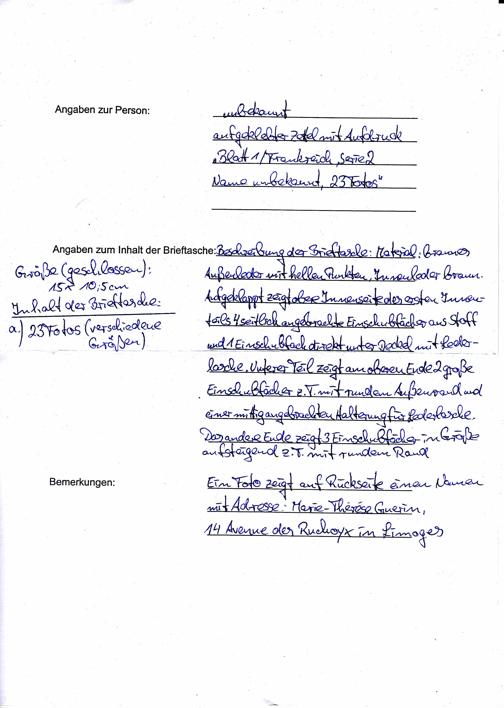 Angaben zur Person:
unbekannt
aufgeklebter Zettel mit Aufdruck
„Blatt 1/Frankreich, Serie 2
Name unbekannt, 23 Fotos"
Angaben zum Inhalt der Brieftasche: Beschreibung der Brieftasche: Material: braunes
Außenleder mit hellen Punkten, Innenleder braun.
Aufgeklappt zeigt obere Innenseite des ersten Innen-
teils 4 seitlich angebrachte Einschubfächer aus Stoff
und 1 Einschubfach direkt unter Deckel mit Leder-
lasche. Unterer Teil zeigt am oberen Ende 2 große
Einschubfächer z.T. mit rundem Außenrand und
einer mittig angebrachten Halterung für Lederlasche.
Das andere Ende zeigt 3 Einschubfächer in Größe
aufsteigend z.T. mit rundem Rand
Größe (geschlossen):
15 x 10,5cm
Inhalt der Brieftasche:
a) 23 Fotos (verschiedene
Größen)
Bemerkungen:
Ein Foto zeigt auf Rückseite einen Namen
mit Adresse: Marie-Thérèse Guerin,
14 Avenue des Ruchoyx in Limoges